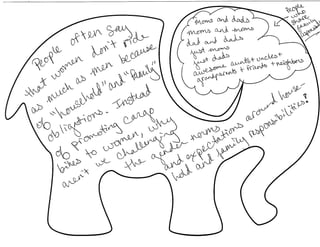 People often say
that women don't ride
as much as men because
of "household" and "family"
obligations. Instead
of promoting cargo
bikes to women, why
aren't we challenging
the gender norms
and expectations around house-
hold and family responsibilities?
Moms and dads
moms and moms
dad and dads
just moms
just dads
awesome aunts + uncles +
grandparents + friends + neighbors
People
who
share